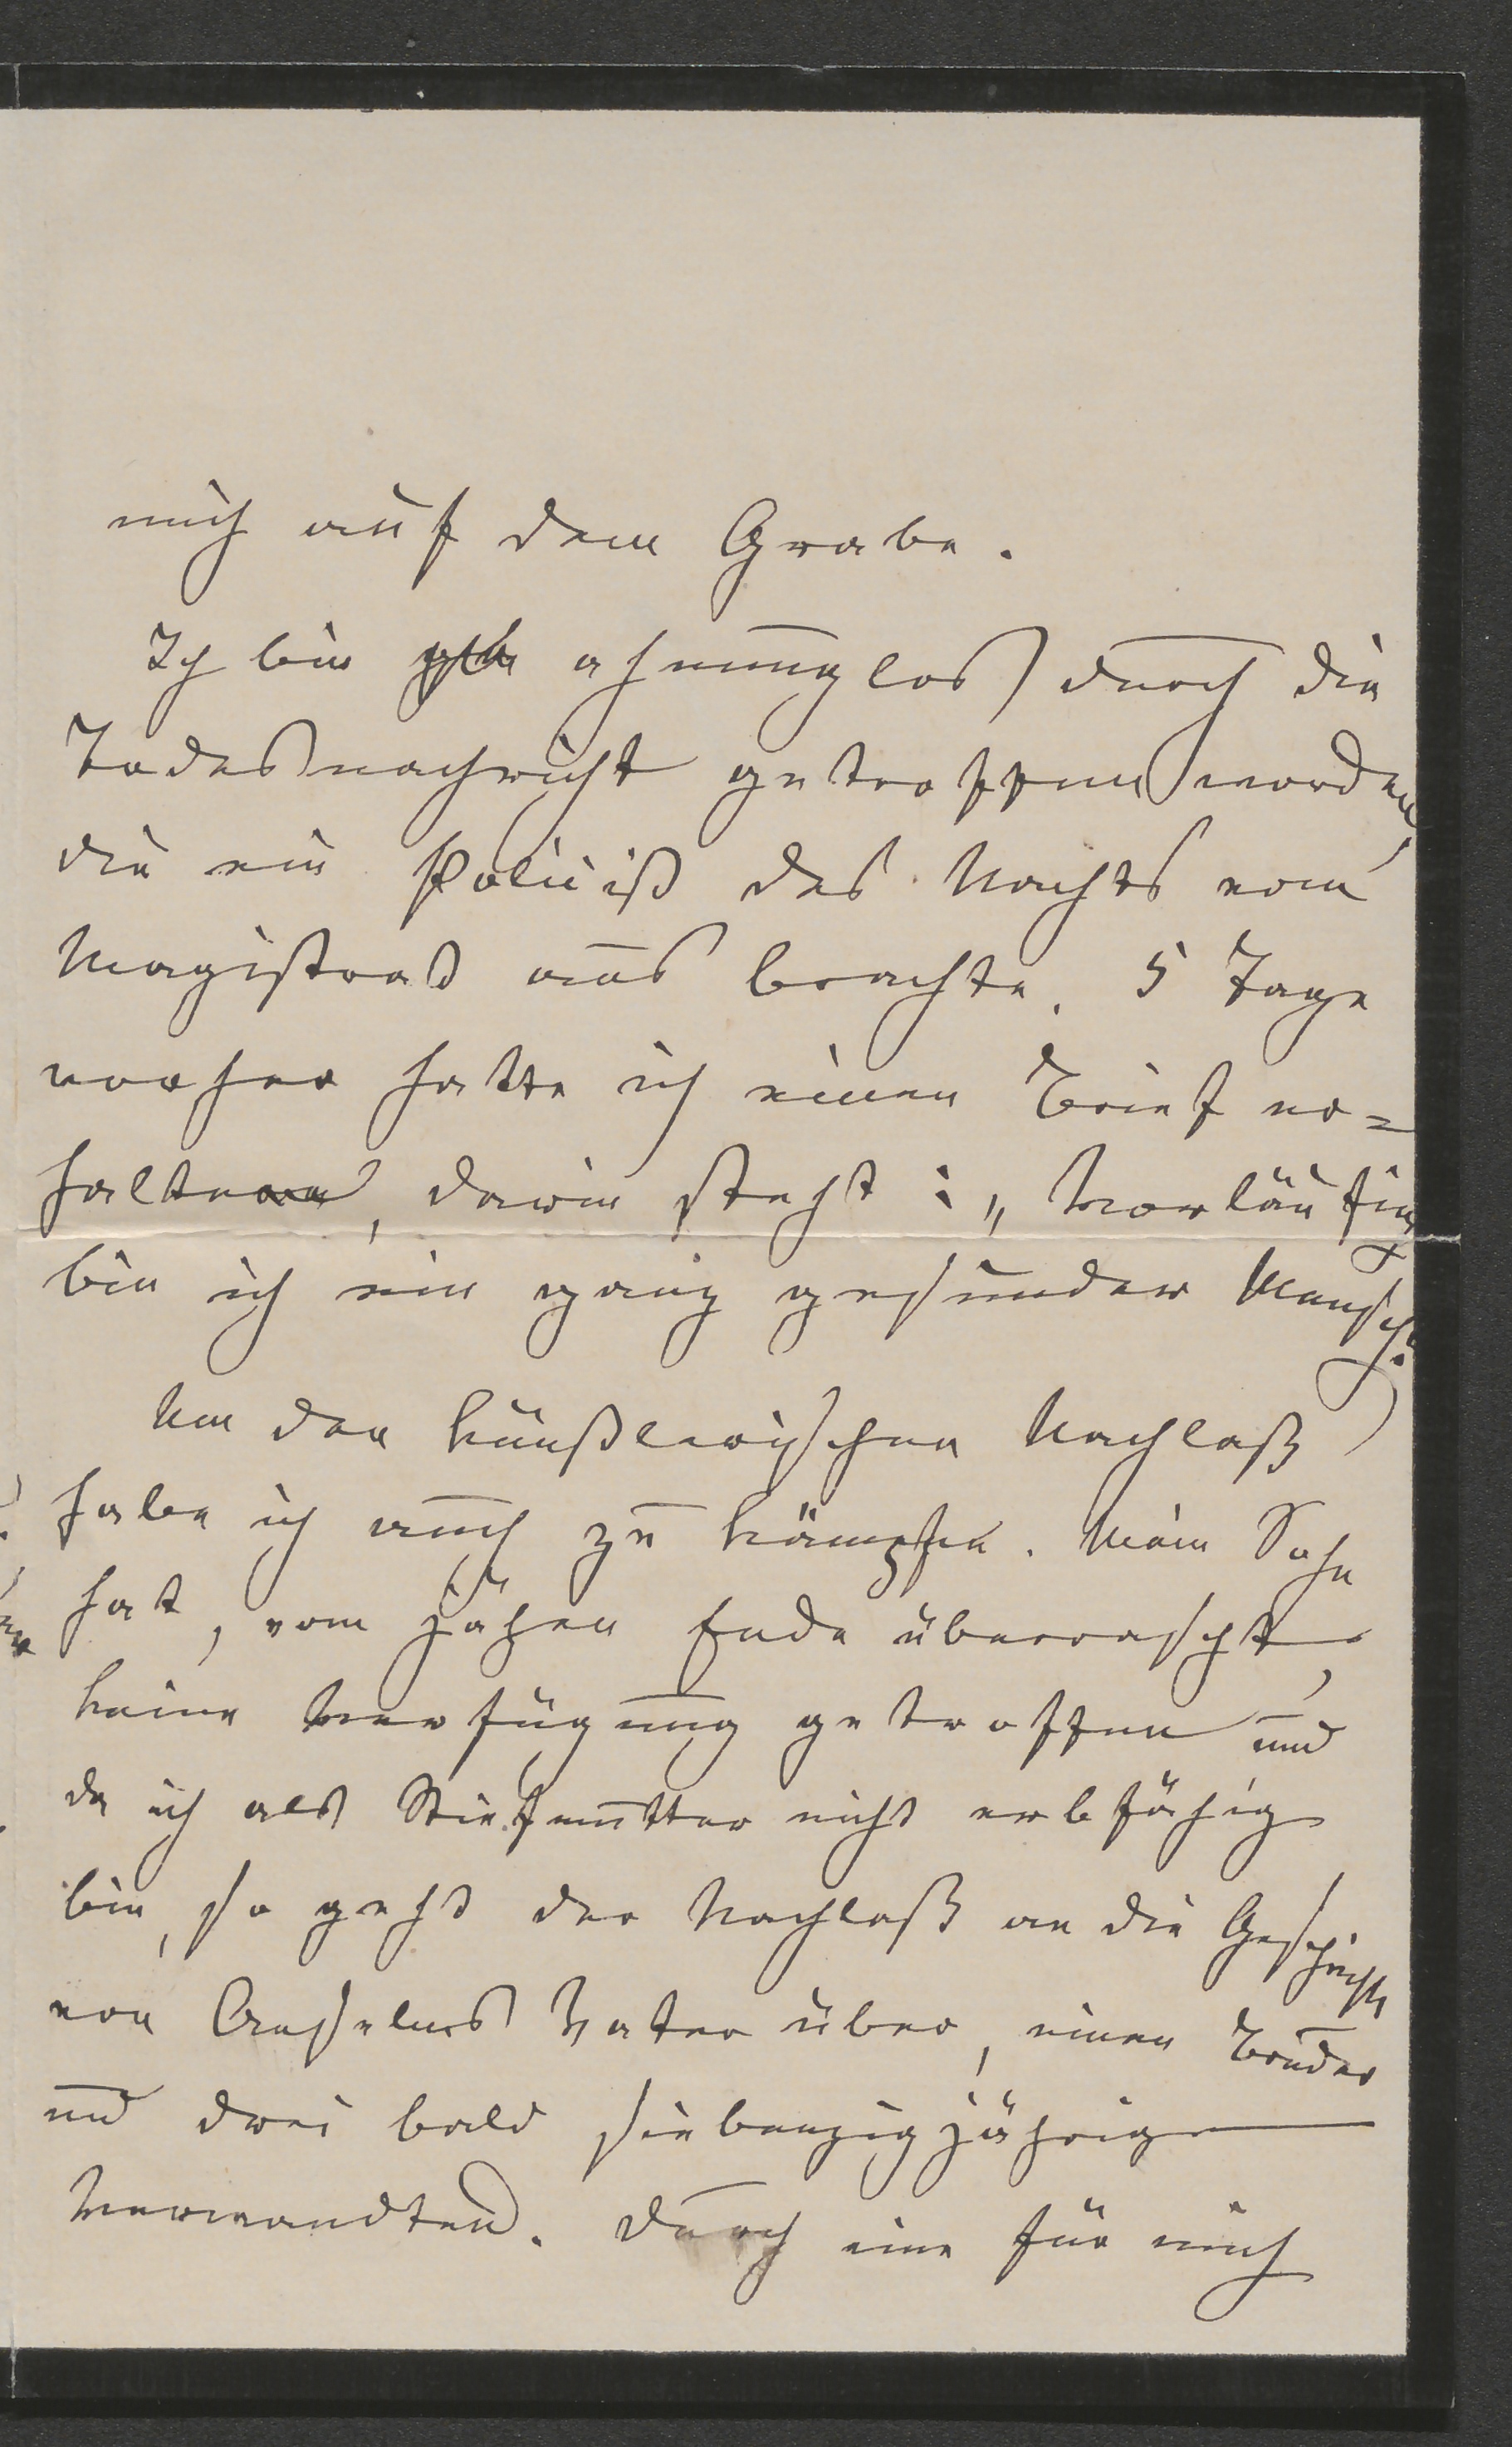 mich auf dem Grabe.
Ich bin ahnungslos durch die
Todesnachricht getroffen worden,
die ein Poliziist des Nachts vom
Magistrat aus brachte. 5 Tage
vorher hatte ich einen Brief er=
halten, darin steht: „Vorläufig
bin ich ein ganz gesunder Mensch."
Um den künstlerischen Nachlaß
habe ich auch zu kämpfen. Mein Sohn
hat, vom jähen Ende überrascht,
keine Verfügung getroffen und
da ich als Stiefmutter nicht erbfähig
bin, so geht der Nachlaß an die
von Anselms Vater über, einen Bruder
und drei bald siebenzigjährige
Verwandten. Durch eine für mich